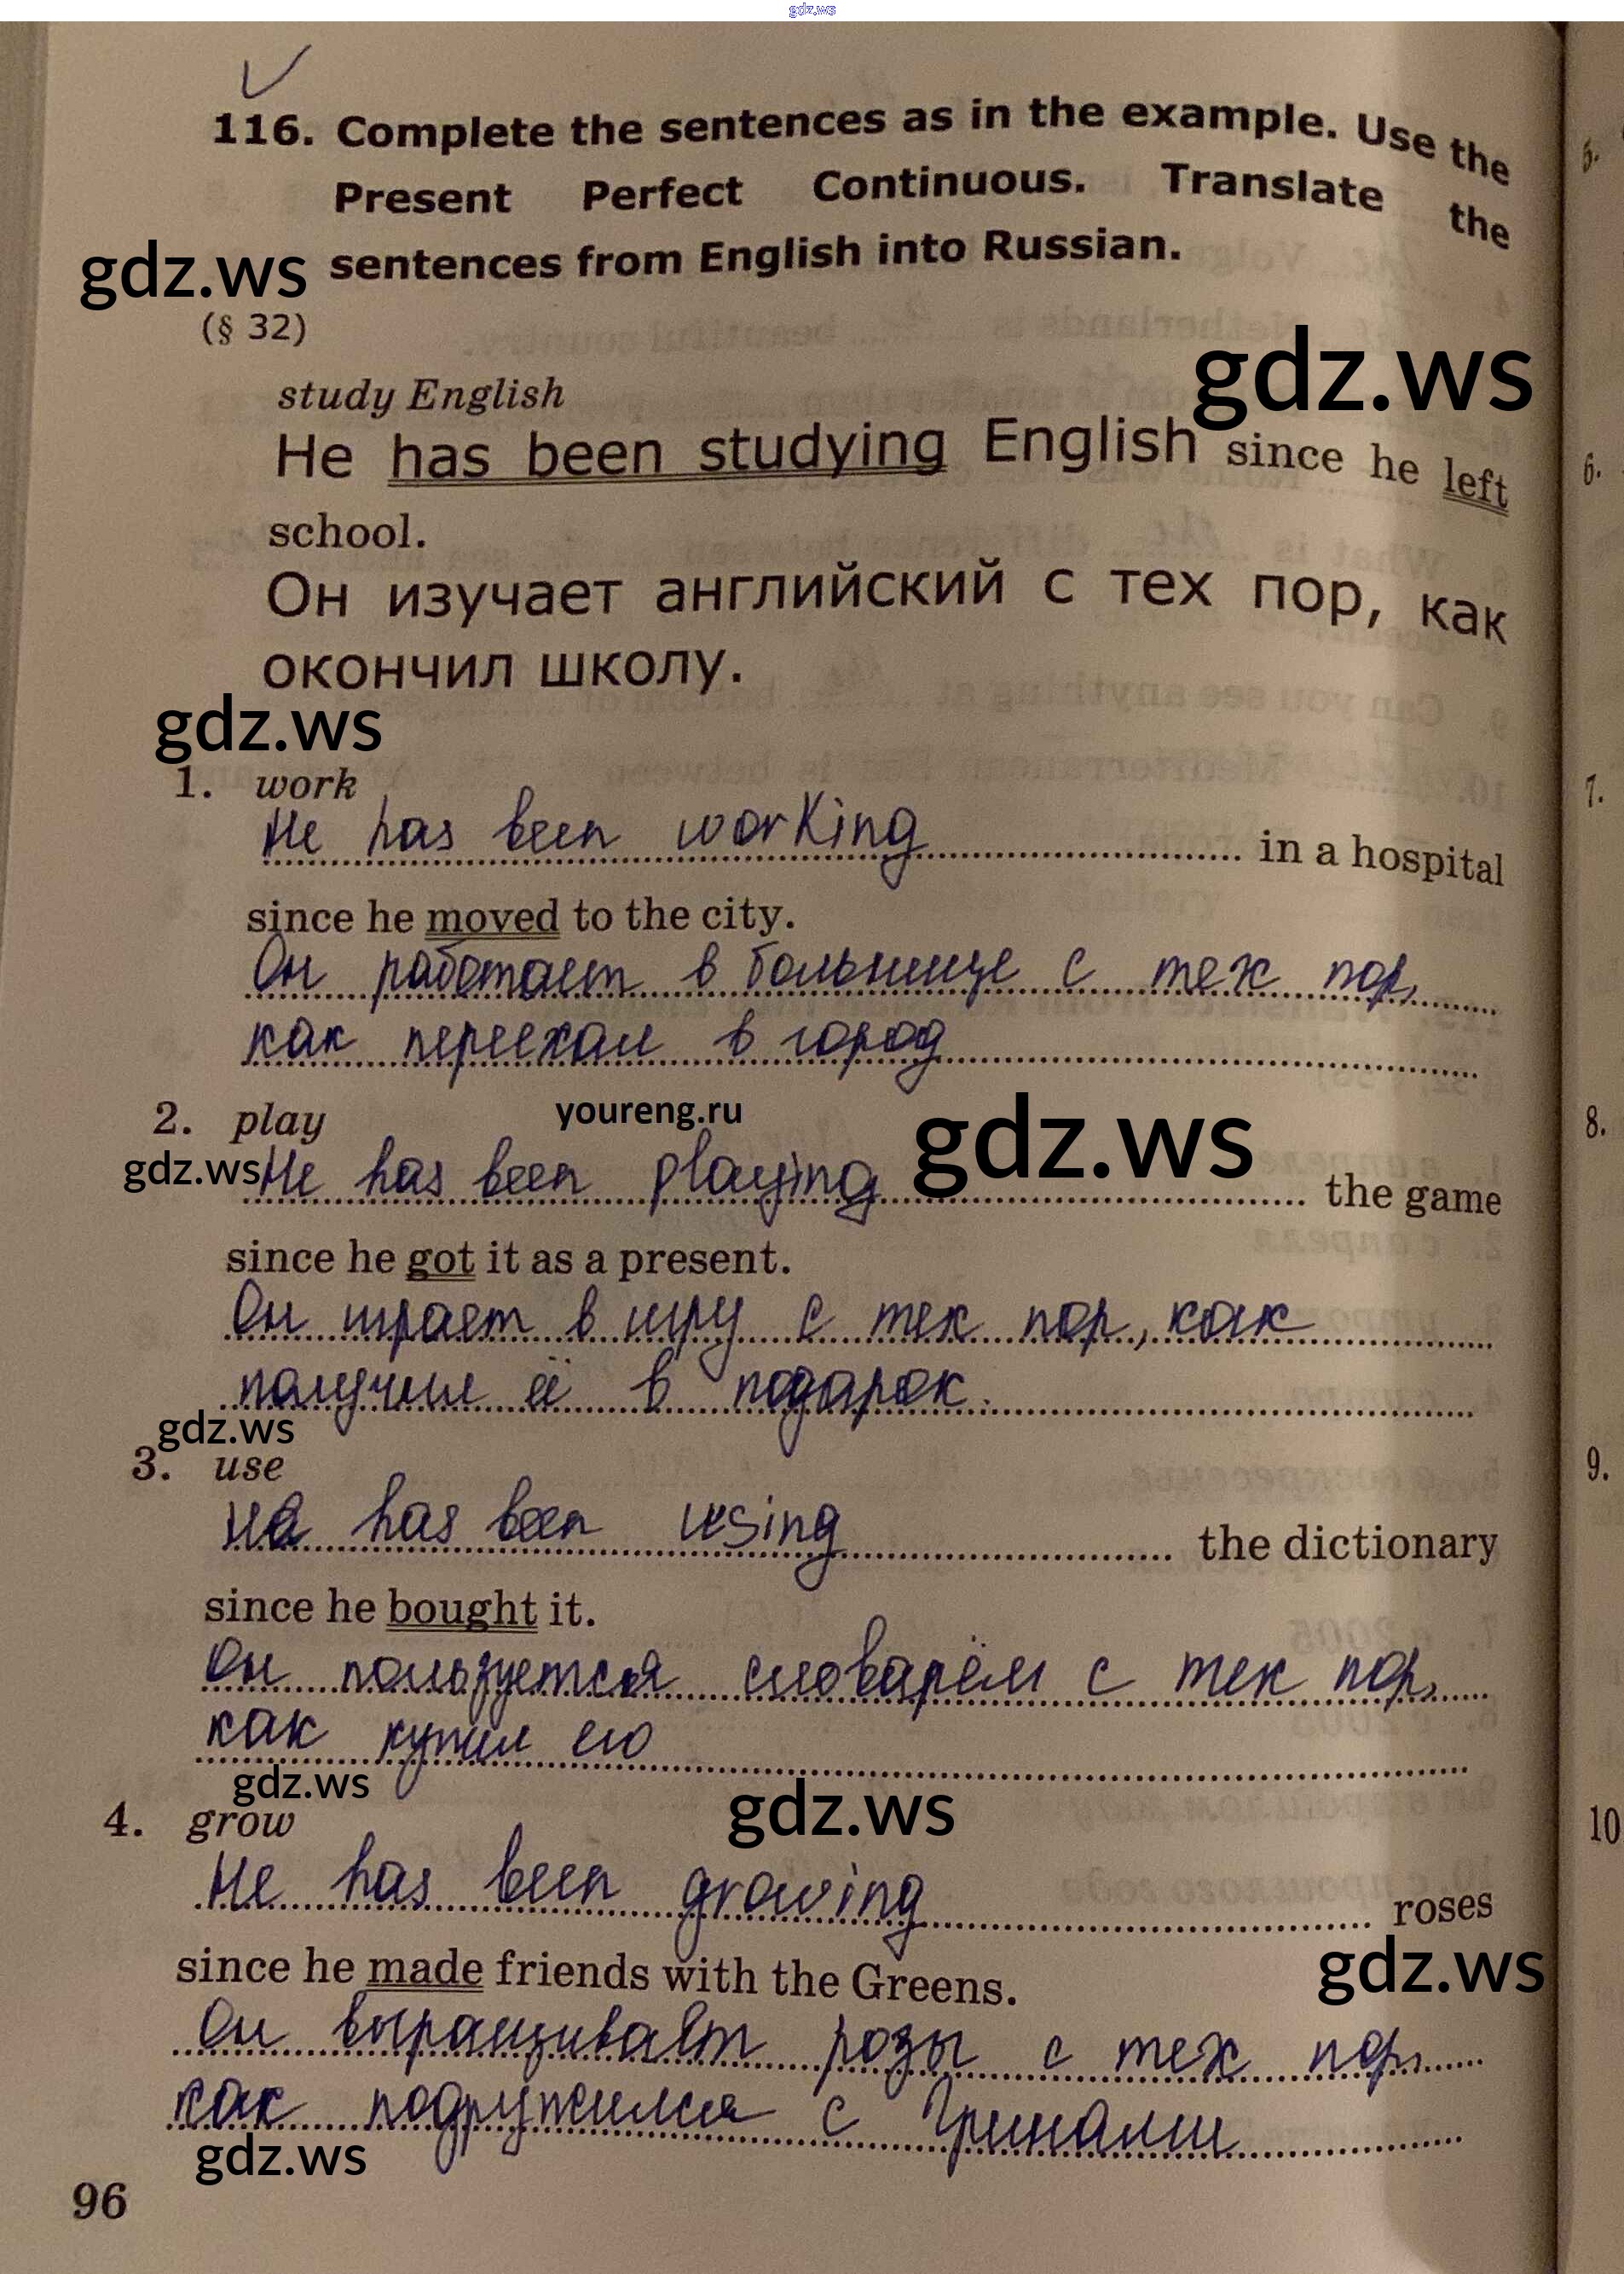 gdz.ws
116. Complete the sentences as in the example. Use the
Present Perfect Continuous. Translate the
gdz.ws sentences from English into Russian.
(§ 32)
gdz.ws
study English
He has been studying English since he left
school.
Он изучает английский с тех пор, как
окончил школу.
gdz.ws
1. work
He has been working in a hospital
since he moved to the city.
Он работает в больнице с тех пор,
как переехал в город
2. play
youreng.ru
gdz.ws
gdz.ws
He has been playing the game
since he got it as a present.
Он играет в игру с тех пор, как
получил её в подарок.
gdz.ws
3. use
He has been using the dictionary
since he bought it.
Он пользуется словарём с тех пор,
как купил его
gdz.ws
gdz.ws
4. grow
He has been growing roses
since he made friends with the Greens.
gdz.ws
Он выращивает розы с тех пор,
как подружился с Гринами
gdz.ws
96
5.
6.
7.
8.
9.
10